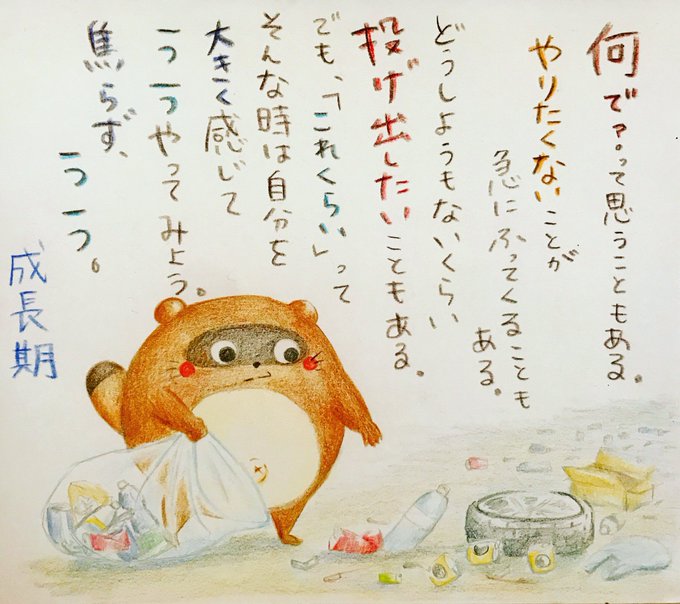 何で？って思うこともある。
やりたくないことが
急にふってくることも
ある。
どうしようもないくらい
投げ出したいこともある。
でも、「これくらい」って
そんな時は自分を
大きく感じて
一つ一つやってみよう。
焦らず、
一つ一つ。
成長期